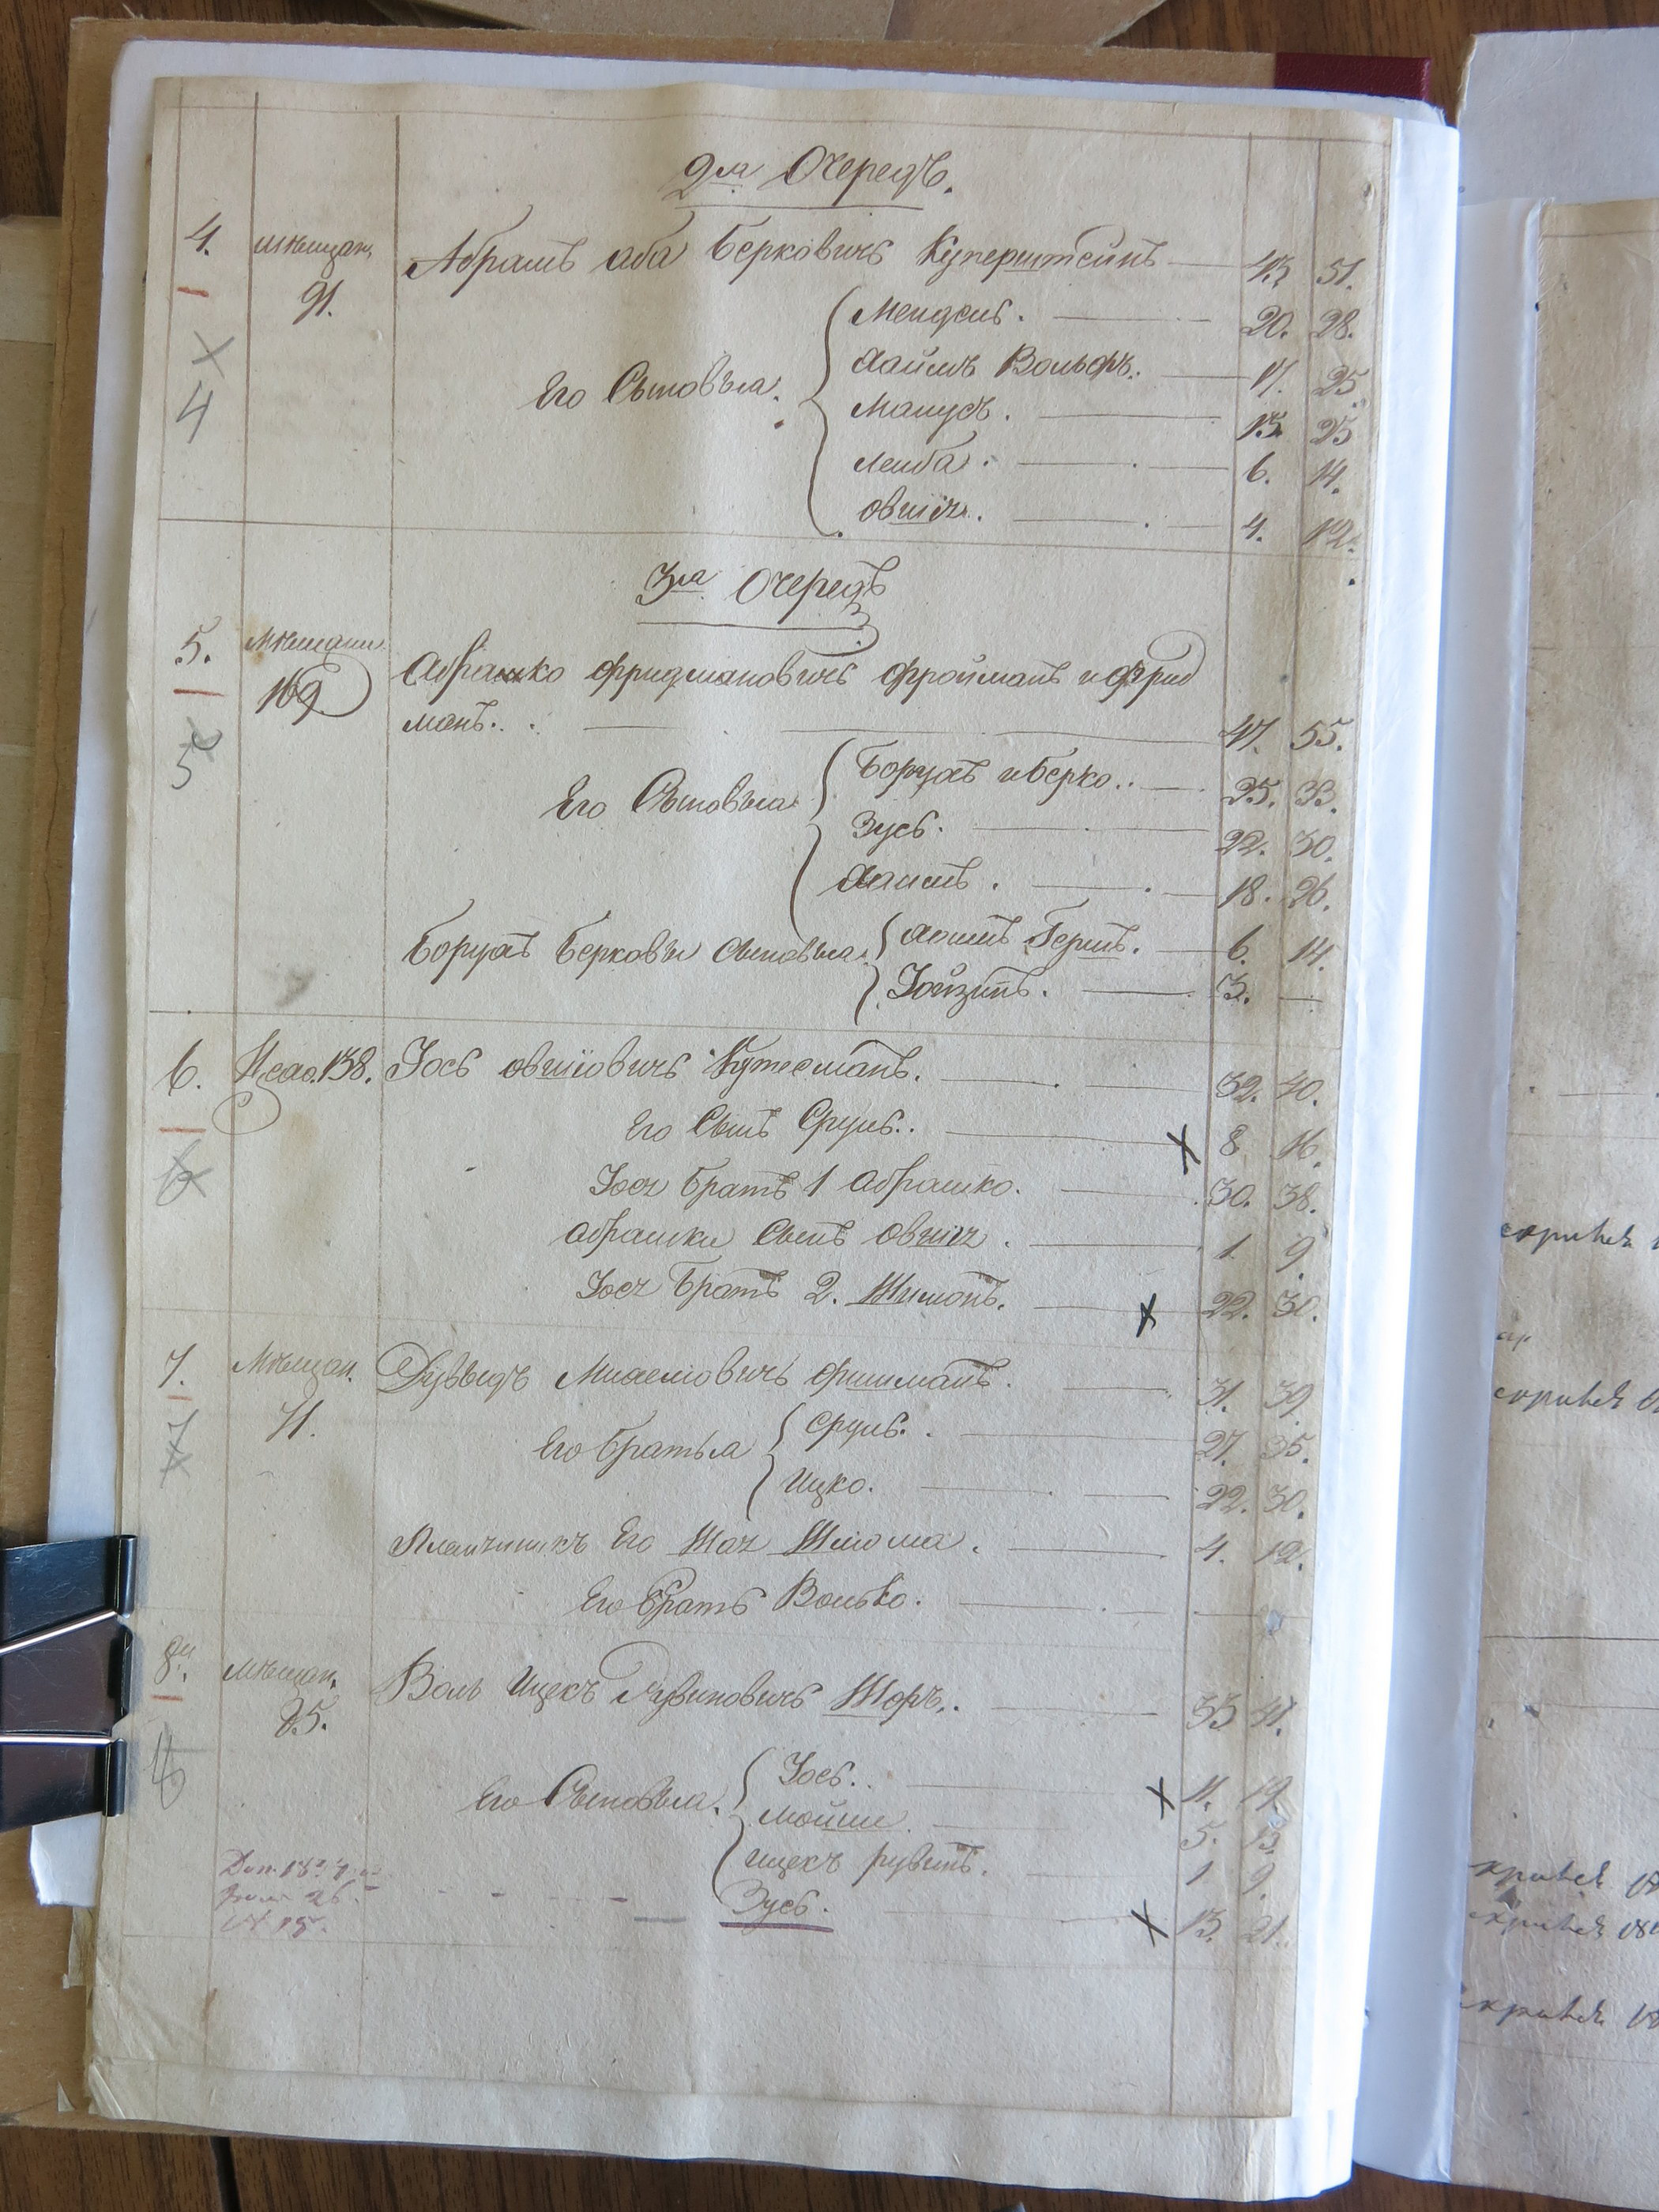 2ая Очередь.
4. мѣщан. 91. Абрамъ аба Берковичъ Куперштейнъ 43 51.
Его Сыновья. Мендель. 20. 28.
Хаимъ Вольфъ. 17. 25.
Манусъ. 15. 23
Лейба. 6. 14.
Овшія. 4. 12.
3я Очередь
5. Мѣщанин. 169 Абрашко Фридмановичъ Фройманъ и Фрид
манъ. 47. 55.
5
Его Сыновья Борухъ и Берко. 25. 33.
Зусь. 22. 30.
Хаимъ. 18. 26.
Борухъ Берковы сыновья. Хаимъ Гершъ. 6. 14.
Іойзипъ. 3. —
6. 138. Іось овшіовичъ Кутесманъ. 32. 40.
Его Сынъ Сруль. х 8 16.
6
Іося братъ 1 абрашко. 30. 38.
абрашки Сынъ овшія. 1. 9.
Іося Братъ 2. Шимонъ. х 22. 30.
7. Мѣщан. 71. Дувыдъ Михелевичъ Фишманъ. 31. 39
7
Его братья Сруль. 27. 35.
Ицко. 22. 30.
Племянникъ Его Шая Шлома. 4. 12.
Его Братъ Волько.
8й. Мѣщан. 25. Воль Ицекъ Рувиновичъ Шоръ. 33 41.
Его Сыновья. Іось. х 11. 19
мойше. 5. 13
ицекъ рувинъ. 1 9.
Зусь. х 13. 21.
скрився
скрився
скрився
скрився
скрився